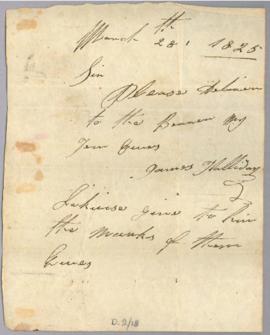 March th
28 1825
Sir
Please deliver
to the Bearer my
Ten Ewes
James Halliday
Likwise give to him
the marks of them
Ewes
D.2/18